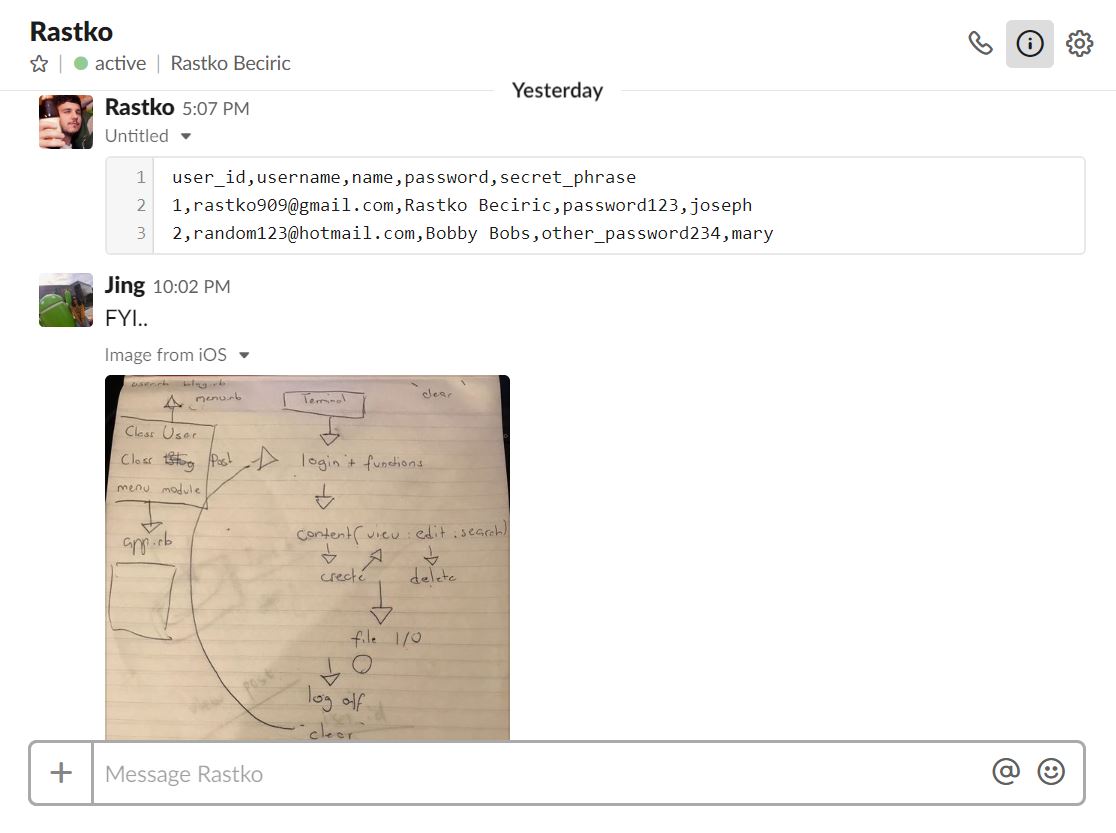 Rastko
active | Rastko Beciric
Yesterday
Rastko 5:07 PM
Untitled
1 user_id,username,name,password,secret_phrase
2 1,rastko909@gmail.com,Rastko Beciric,password123,joseph
3 2,random123@hotmail.com,Bobby Bobs,other_password234,mary
Jing 10:02 PM
FYI..
Image from iOS
blog.rb
menu.rb
Terminal
`clear`
Class User
Class Post
menu module
app.rb
login + functions
content( view : edit : search)
create
delete
file I/O
log off
clear
view post
Message Rastko